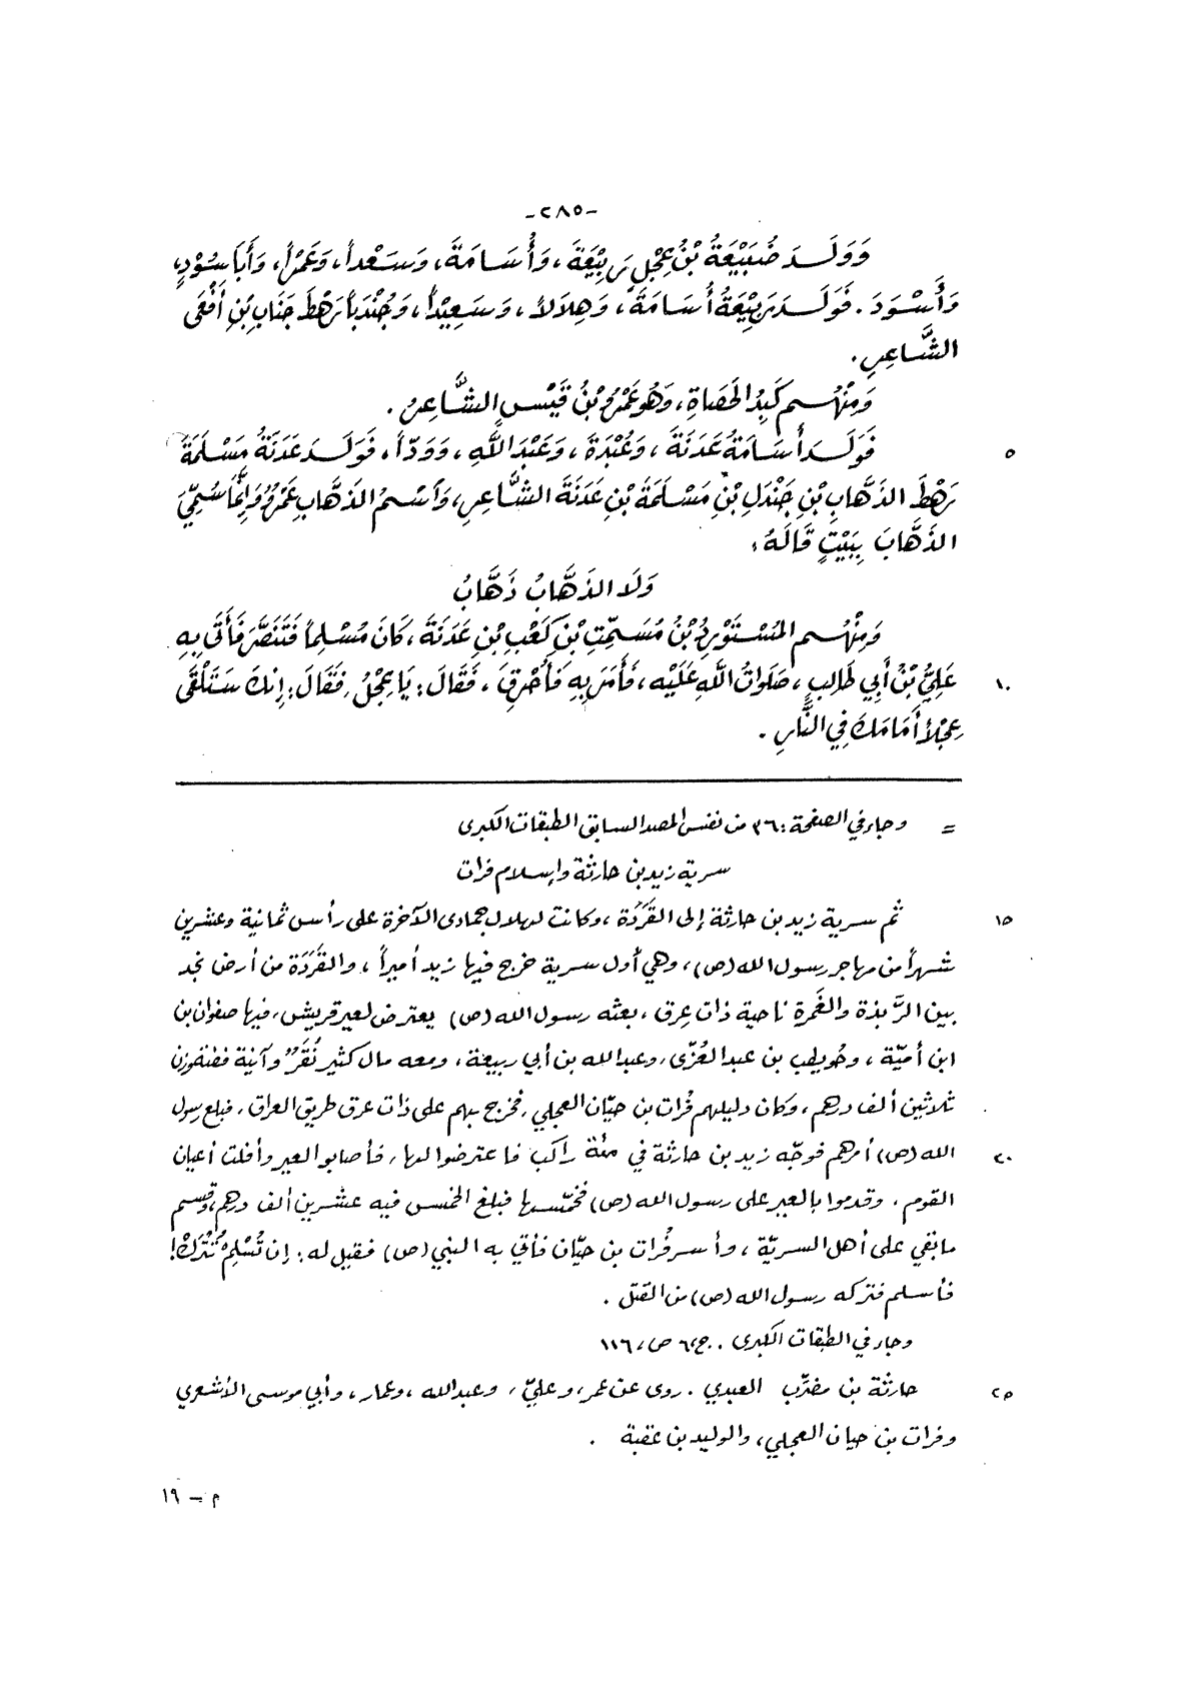 -٢٨٥-
وَوَلَـدَ ضُبَيْعَةُ بْنُ عِجْلٍ رَبِيْعَةَ ، وَأُسَامَةَ، وَسَعْداً، وَعَمْراً، وَأَبَا سُوْدٍ،
وَأَسْوَدَ . فَوَلَـدَ رَبِيْعَةُ أُسَامَةَ ، وَهِلاَلاً ، وَسَعِيْداً، وَجُنْدَباً رَهْطَ جَنَابِ بْنِ أَفْعَى
الشَّاعِرِ .
وَمِنْهُـم كَبِدُ الحَصَاةِ ، وَهُوَ عَمْرُو بْنُ قَيْسٍ الشَّاعِرُ .
٥ فَوَلَـدَ أُسَامَةُ عَدَنَةَ ، وَعُبْدَةَ ، وَعَبْدَ اللَّهِ ، وَوَدّاً ، فَوَلَـدَ عَدَنَةُ مَسْلَمَةَ
رَهْطَ الذَّهَّابِ بْنِ جَنْدَلِ بْنِ مَسْلَمَةَ بْنِ عَدَنَةَ الشَّاعِرِ، وَاسْمُ الذَهَّابِ عَمْرٌو وَإِنَّمَا سُمِّيَ
الذَهَّابَ بِبَيْتٍ قَالَهُ :
وَلَا الذَهَّابُ ذَهَّابُ
وَمِنْهُـم المُسْتَوْرِدُ بْنُ مُسَمِّتِ بْنِ كَعْبِ بْنِ عَدَنَةَ ، كَانَ مُسْلِماً فَتَنَصَّرَ فَأَتَى بِهِ
١٠ عَلِيَّ بْنَ أَبِي طَالِبٍ ، صَلَوَاتُ اللَّهِ عَلَيْهِ ، فَأَمَرَ بِهِ فَأُحْرِقَ ، فَقَالَ : يَا عِجْلُ ، فَقَالَ : إِنكَ سَتَلْقَى
عِجْلاً أَمَامَكَ فِي النَّارِ .
= وجاء في الصفحة : ٣٦ من نفس المصد السابق الطبقات الكبرى
سرية زيد بن حارثة وإسلام فرات
١٥ ثم سرية زيد بن حارثة إلى القَرَدَة ، وكانت لهلال جمادى الآخرة على رأس ثمانية وعشرين
شهراً من مهاجر رسول الله (ص) ، وهي أول سرية خرج فيها زيد أميراً ، والقَرَدَة من أرض نجد
بين الرَّبذة والغَمرة ناحية ذات عِرق ، بعثه رسول الله (ص) يعترض لعير قريش ، فيها صفوان بن
ابن أميّة ، وحُويطب بن عبد العُزّى ، وعبد الله بن أبي ربيعة ، ومعه مال كثير نُقَرٌ وآنية فضة وزن
ثلاثين ألف درهم ، وكان دليلهم فُرات بن حيّان العجلي ، فخرج بهم على ذات عرق طريق العراق ، فبلغ رسول
٢٠ الله (ص) أمرهم فوجّه زيد بن حارثة في مئة راكب فاعترضوا لها ، فأصابوا العير وأفلت أعيان
القوم ، وقدموا بالعير على رسول الله (ص) فخمّسها فبلغ الخمس فيه عشرين ألف درهم وقسم
ما بقي على أهل السريّة ، وأسر فُرات بن حيّان فأتي به النبي (ص) فقيل له : إن تُسْلِمْ تُتْرَكْ !
فأسلم فتركه رسول الله (ص) من القتل .
وجاء في الطبقات الكبرى . ج ٦ ص ١١٦
٢٥ حارثة بن مضرّب العبدي . روى عن عمر ، وعليّ ، وعبد الله ، وعمار ، وأبي موسى الأشعري
وفرات بن حيان العجلي ، والوليد بن عقبة .
م - ١٩